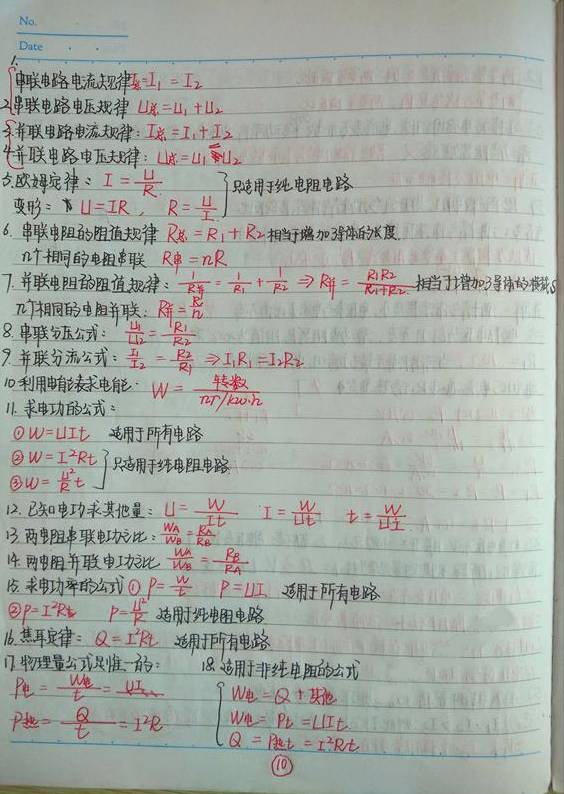 No.
Date
1.
串联电路电流规律I总=I₁=I₂
2.串联电路电压规律 U总=U₁+U₂
3.并联电路电流规律: I总=I₁+I₂
4.并联电路电压规律: U总=U₁=U₂
5.欧姆定律: I=U/R 只适用于纯电阻电路
变形: U=IR, R=U/I
6. 串联电阻的阻值规律 R总=R₁+R₂ 相当于增加导体的长度.
n个相同的电阻串联 R串=nR
7.并联电阻的阻值规律: 1/R并=1/R₁+1/R₂ ⇒ R并=R₁R₂/R₁+R₂ 相当于增加了导体的横截S
n个相同的电阻并联: R并=R/n
8.串联分压公式: U₁/U₂=R₁/R₂
9.并联分流公式: I₁/I₂=R₂/R₁ ⇒ I₁R₁=I₂R₂
10.利用电能表求电能: W=转数/nr/kw·h
11.求电功的公式:
①W=UIt 适用于所有电路
②W=I²Rt
只适用于纯电阻电路
③W=U²/R t
12.已知电功求其他量: U=W/It I=W/Ut t=W/UI
13.两电阻串联电功之比: WA/WB=RA/RB
14.两电阻并联电功之比 WA/WB=RB/RA
15.求电功率的公式 ①P=W/t P=UI 适用于所有电路
②P=I²R P=U²/R 适用于纯电阻电路
16.焦耳定律: Q=I²Rt 适用于所有电路
17.物理量公式是唯一的: 18.适用于非纯电阻的公式
P电=W电/t=UI W电=Q+其他
W电=Pt=UIt
P热=Q/t=I²R
Q=P热t=I²Rt
10